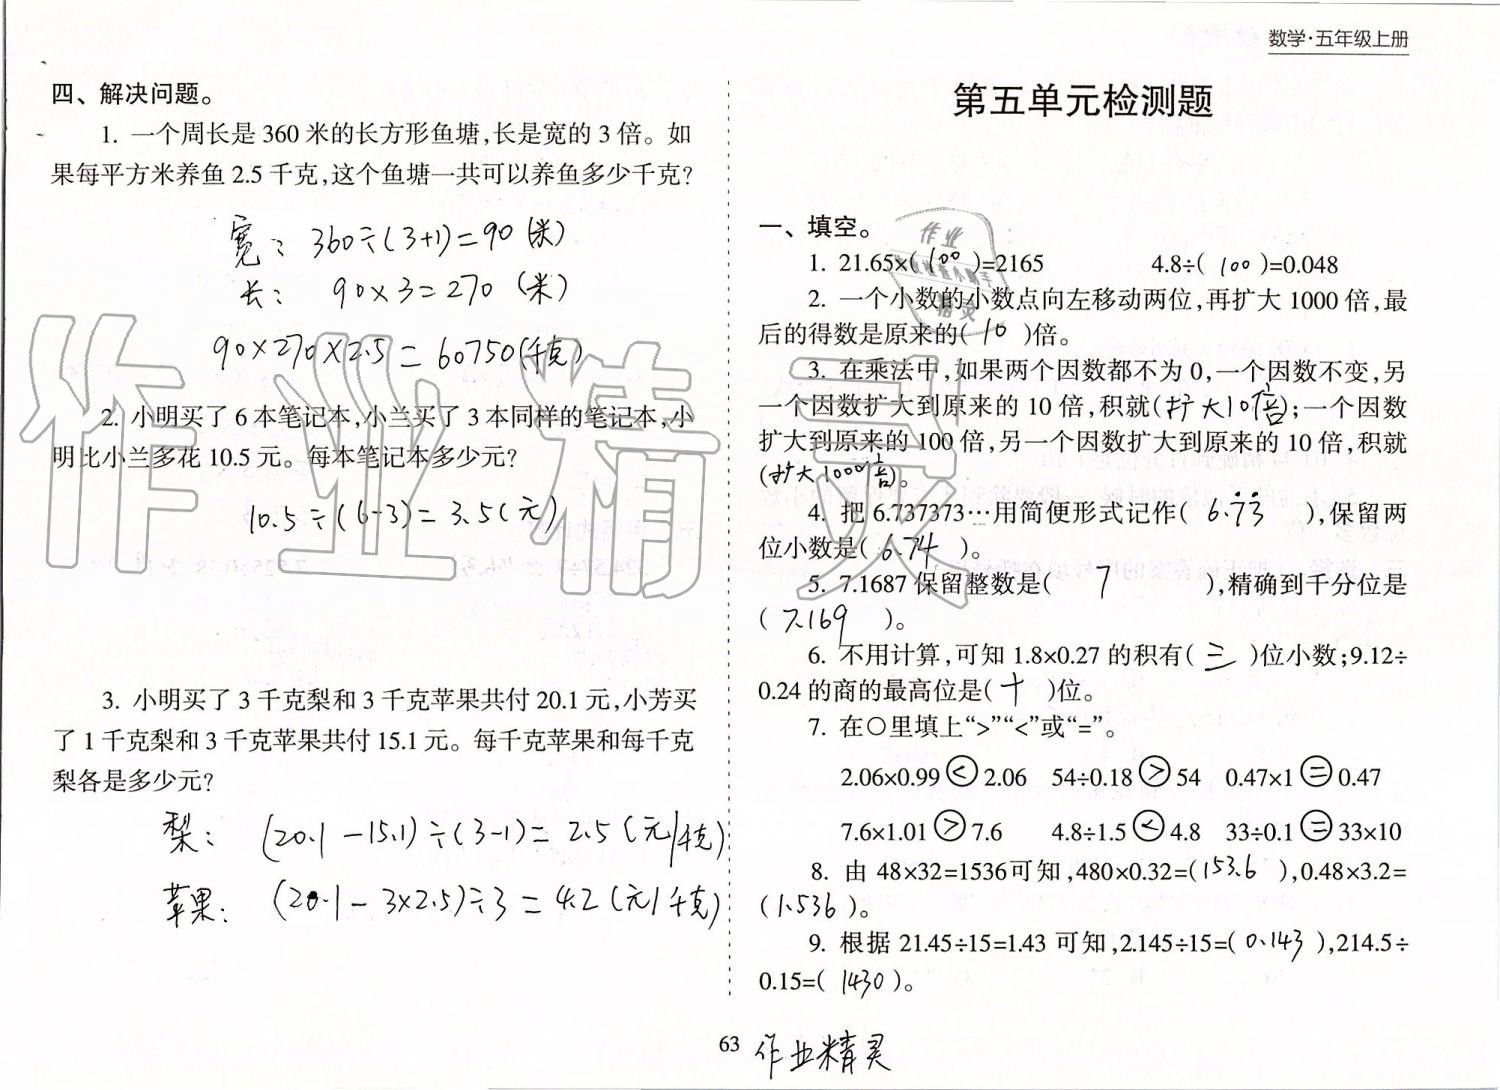 数学·五年级上册
四、解决问题。
1. 一个周长是 360 米的长方形鱼塘,长是宽的 3 倍。如
果每平方米养鱼 2.5 千克,这个鱼塘一共可以养鱼多少千克?
宽: 360÷(3+1)=90 (米)
长: 90×3=270 (米)
90×270×2.5=60750(千克)
2. 小明买了 6 本笔记本,小兰买了 3 本同样的笔记本,小
明比小兰多花 10.5 元。每本笔记本多少元?
10.5÷(6-3)=3.5(元)
3. 小明买了 3 千克梨和 3 千克苹果共付 20.1 元,小芳买
了 1 千克梨和 3 千克苹果共付 15.1 元。每千克苹果和每千克
梨各是多少元?
梨: (20.1-15.1)÷(3-1)=2.5(元/千克)
苹果: (20.1-3×2.5)÷3=4.2(元/千克)
第五单元检测题
一、填空。
1. 21.65×(100)=2165 4.8÷(100)=0.048
2. 一个小数的小数点向左移动两位,再扩大 1000 倍,最
后的得数是原来的(10)倍。
3. 在乘法中,如果两个因数都不为 0,一个因数不变,另
一个因数扩大到原来的 10 倍,积就(扩大10倍);一个因数
扩大到原来的 100 倍,另一个因数扩大到原来的 10 倍,积就
(扩大1000倍)。
4. 把 6.737373…用简便形式记作(6.7̇3̇),保留两
位小数是(6.74)。
5. 7.1687 保留整数是(7),精确到千分位是
(7.169)。
6. 不用计算,可知 1.8×0.27 的积有(三)位小数;9.12÷
0.24 的商的最高位是(十)位。
7. 在○里填上“>”“<”或“=”。
2.06×0.99<2.06 54÷0.18>54 0.47×1=0.47
7.6×1.01>7.6 4.8÷1.5<4.8 33÷0.1=33×10
8. 由 48×32=1536可知,480×0.32=(153.6),0.48×3.2=
(1.536)。
9. 根据 21.45÷15=1.43 可知,2.145÷15=(0.143),214.5÷
0.15=(1430)。
63
作业精灵
作业精灵